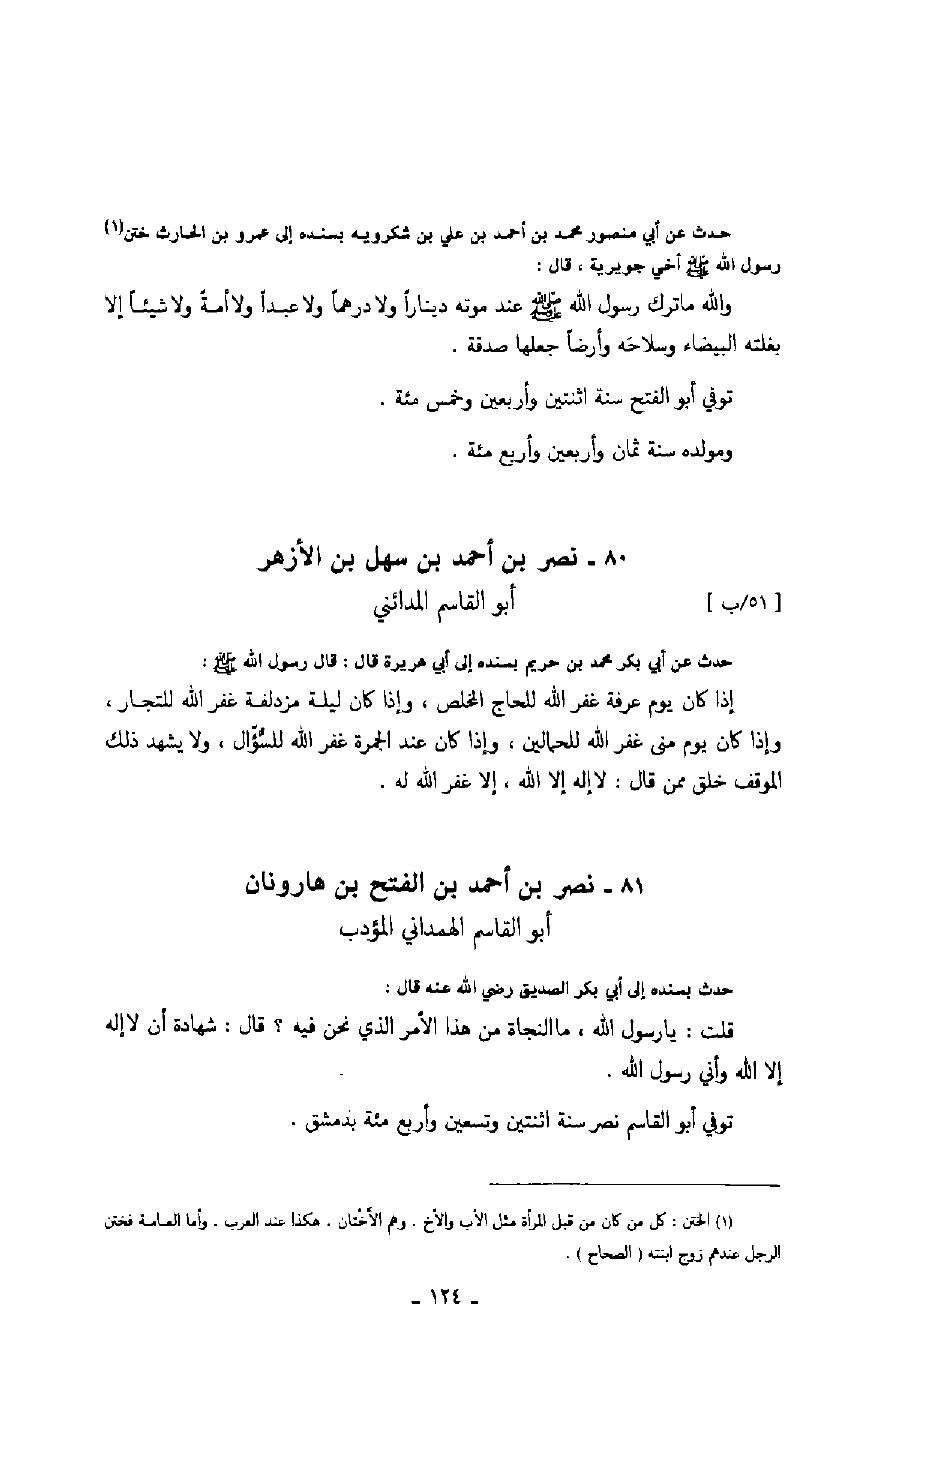 حدث عن أبي منصور محمد بن أحمد بن علي بن شكرويه بسنده إلى عمرو بن الحارث ختن(١)
رسول الله ﷺ أخي جويرية ، قال :
والله ماترك رسول الله ﷺ عند موته ديناراً ولا درهماً ولا عبداً ولا أمةً ولا شيئاً إلا
بغلته البيضاء وسلاحَه وأرضاً جعلها صدقة .
توفي أبو الفتح سنة اثنتين وأربعين وخمس مئة .
ومولده سنة ثمان وأربعين وأربع مئة .
٨٠ ـ نصر بن أحمد بن سهل بن الأزهر
[ ٥١/ب ] أبو القاسم المدائني
حدث عن أبي بكر محمد بن خريم بسنده إلى أبي هريرة قال : قال رسول الله ﷺ :
إذا كان يوم عرفة غفر الله للحاج المخلص ، وإذا كان ليلة مزدلفة غفر الله للتجار ،
وإذا كان يوم منى غفر الله للحمالين ، وإذا كان عند الجمرة غفر الله للسُّؤّال ، ولا يشهد ذلك
الموقف خلق ممن قال : لاإله إلا الله ، إلا غفر الله له .
٨١ ـ نصر بن أحمد بن الفتح بن هارونان
أبو القاسم الهمداني المؤدب
حدث بسنده إلى أبي بكر الصديق رضي الله عنه قال :
قلت : يارسول الله ، ماالنجاة من هذا الأمر الذي نحن فيه ؟ قال : شهادة أن لاإله
إلا الله وأني رسول الله .
توفي أبو القاسم نصر سنة اثنتين وتسعين وأربع مئة بدمشق .
(١) الختن : كل من كان من قبل المرأة مثل الأب والأخ . وهم الأَخْتان . هكذا عند العرب . وأما العامة فختن
الرجل عندهم زوج ابنته ( الصحاح ) .
ـ ١٢٤ ـ